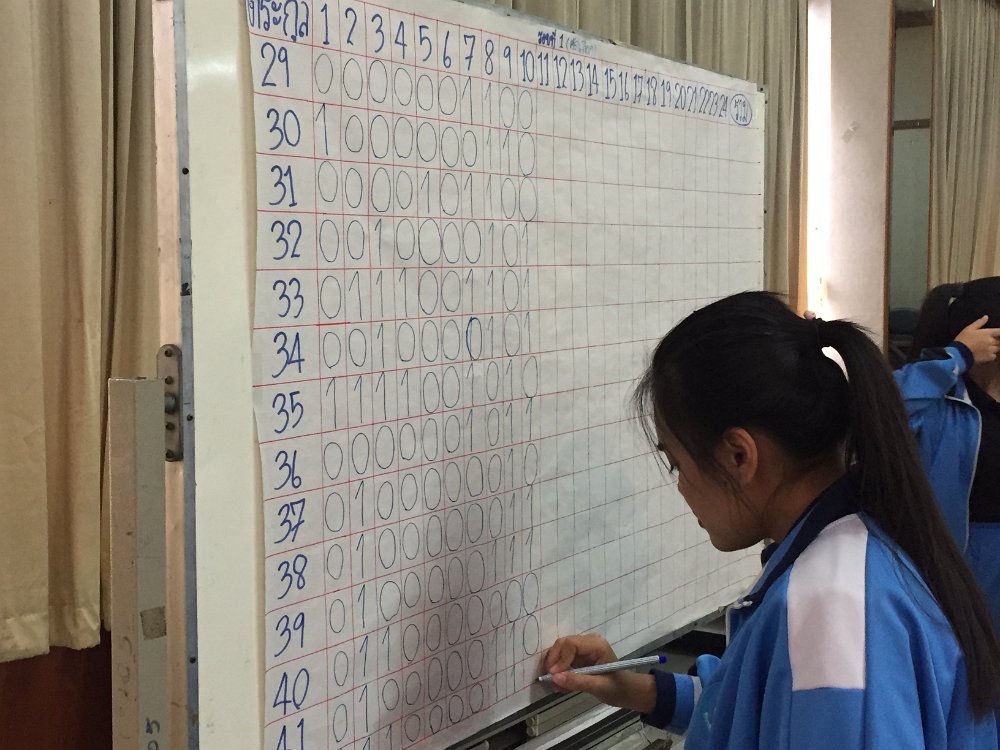 รอบที่ 1
ตระกูล 1 2 3 4 5 6 7 8 9 10 11 12 13 14 15 16 17 18 19 20 21 22 23 24 รวม
29 0 0 0 0 0 0 1 1 0 0
30 1 0 0 0 0 0 0 1 1 0
31 0 0 0 0 1 0 1 1 0 0
32 0 0 1 0 0 0 0 1 0 1
33 0 1 1 1 0 0 1 1 0 1
34 0 0 1 0 0 0 0 1 0 1
35 1 1 1 1 0 0 1 0 1 0
36 0 0 0 0 0 0 1 0 1 1
37 0 1 0 0 0 0 0 0 1 0
38 0 1 0 0 0 0 0 0 1 1
39 0 1 0 0 0 0 0 1 1 1
40 0 1 1 0 0 0 0 1 0 0
41 0 1 1 0 0 0 0 1 1 0